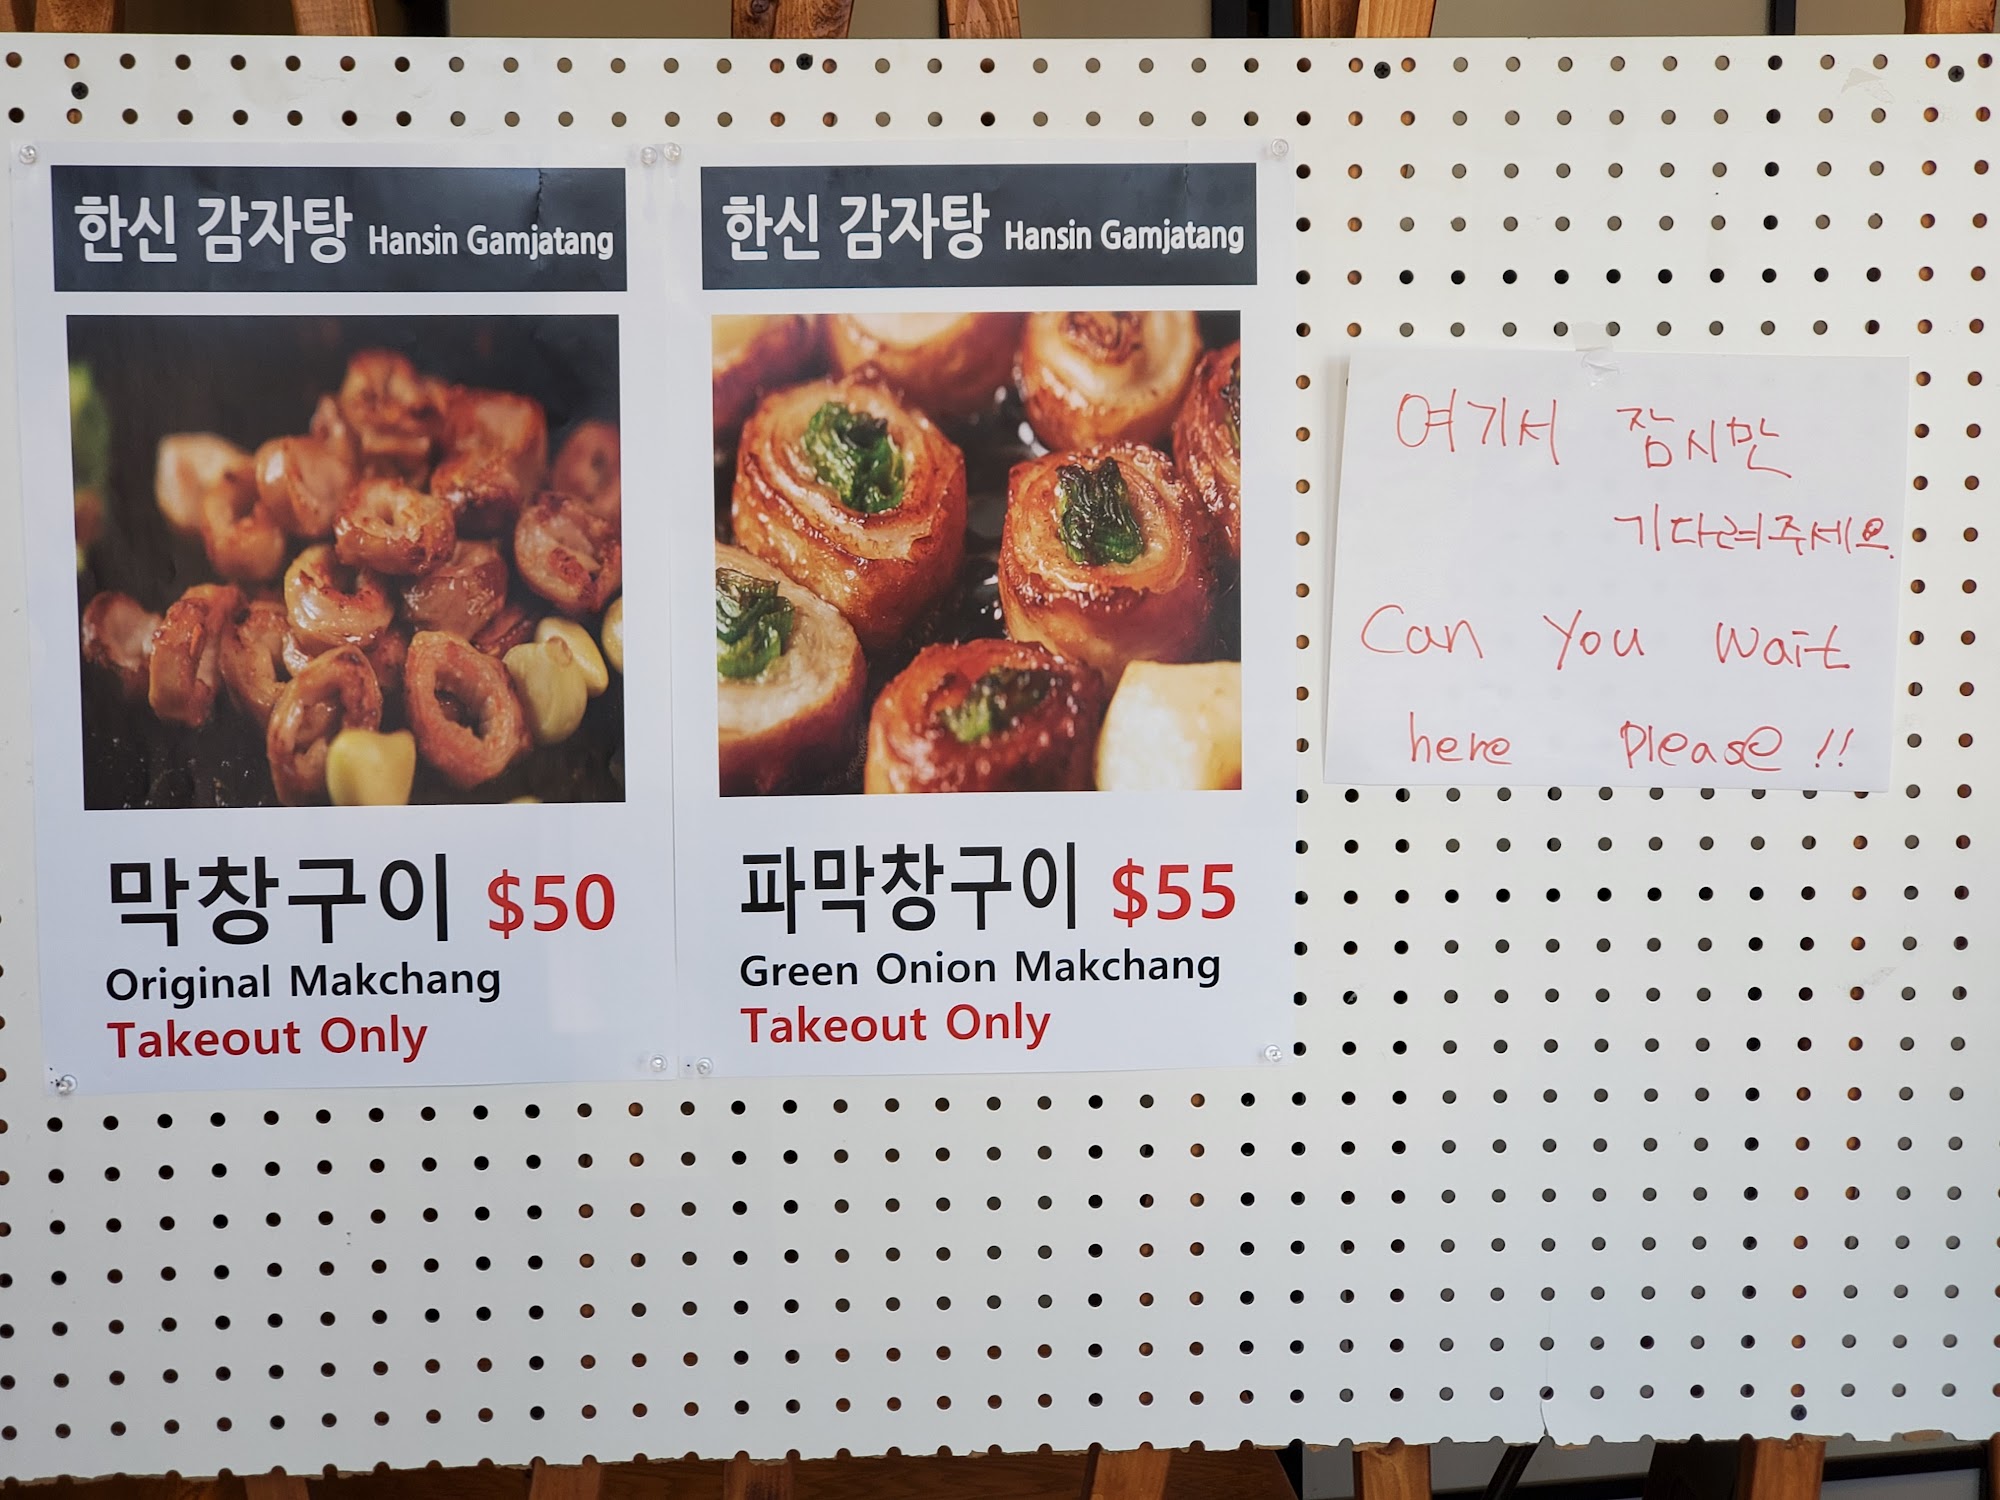 한신 감자탕 Hansin Gamjatang
막창구이 $50
Original Makchang
Takeout Only
한신 감자탕 Hansin Gamjatang
파막창구이 $55
Green Onion Makchang
Takeout Only
여기서 잠시만
기다려주세요.
Can You Wait
here Please!!